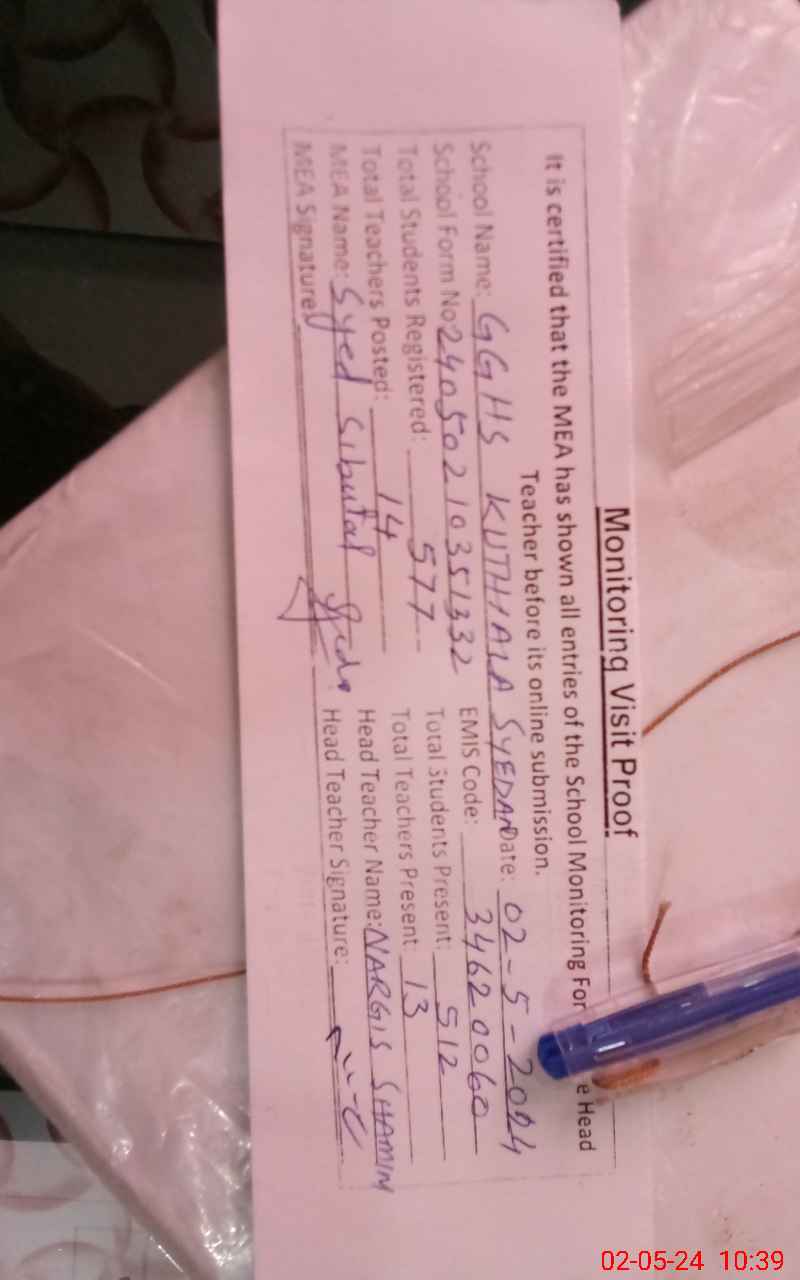 Monitoring Visit Proof
It is certified that the MEA has shown all entries of the School Monitoring For e Head
Teacher before its online submission.
School Name: GGHS KUTHIALA SYEDAN Date: 02-5-2024
School Form No: 24050210351332 EMIS Code: 34620060
Total Students Registered: 577 Total Students Present: 512
Total Teachers Posted: 14 Total Teachers Present: 13
MEA Name: Syed Sibutal Head Teacher Name: NARGIS SHAMIM
MEA Signature: Head Teacher Signature:
02-05-24 10:39